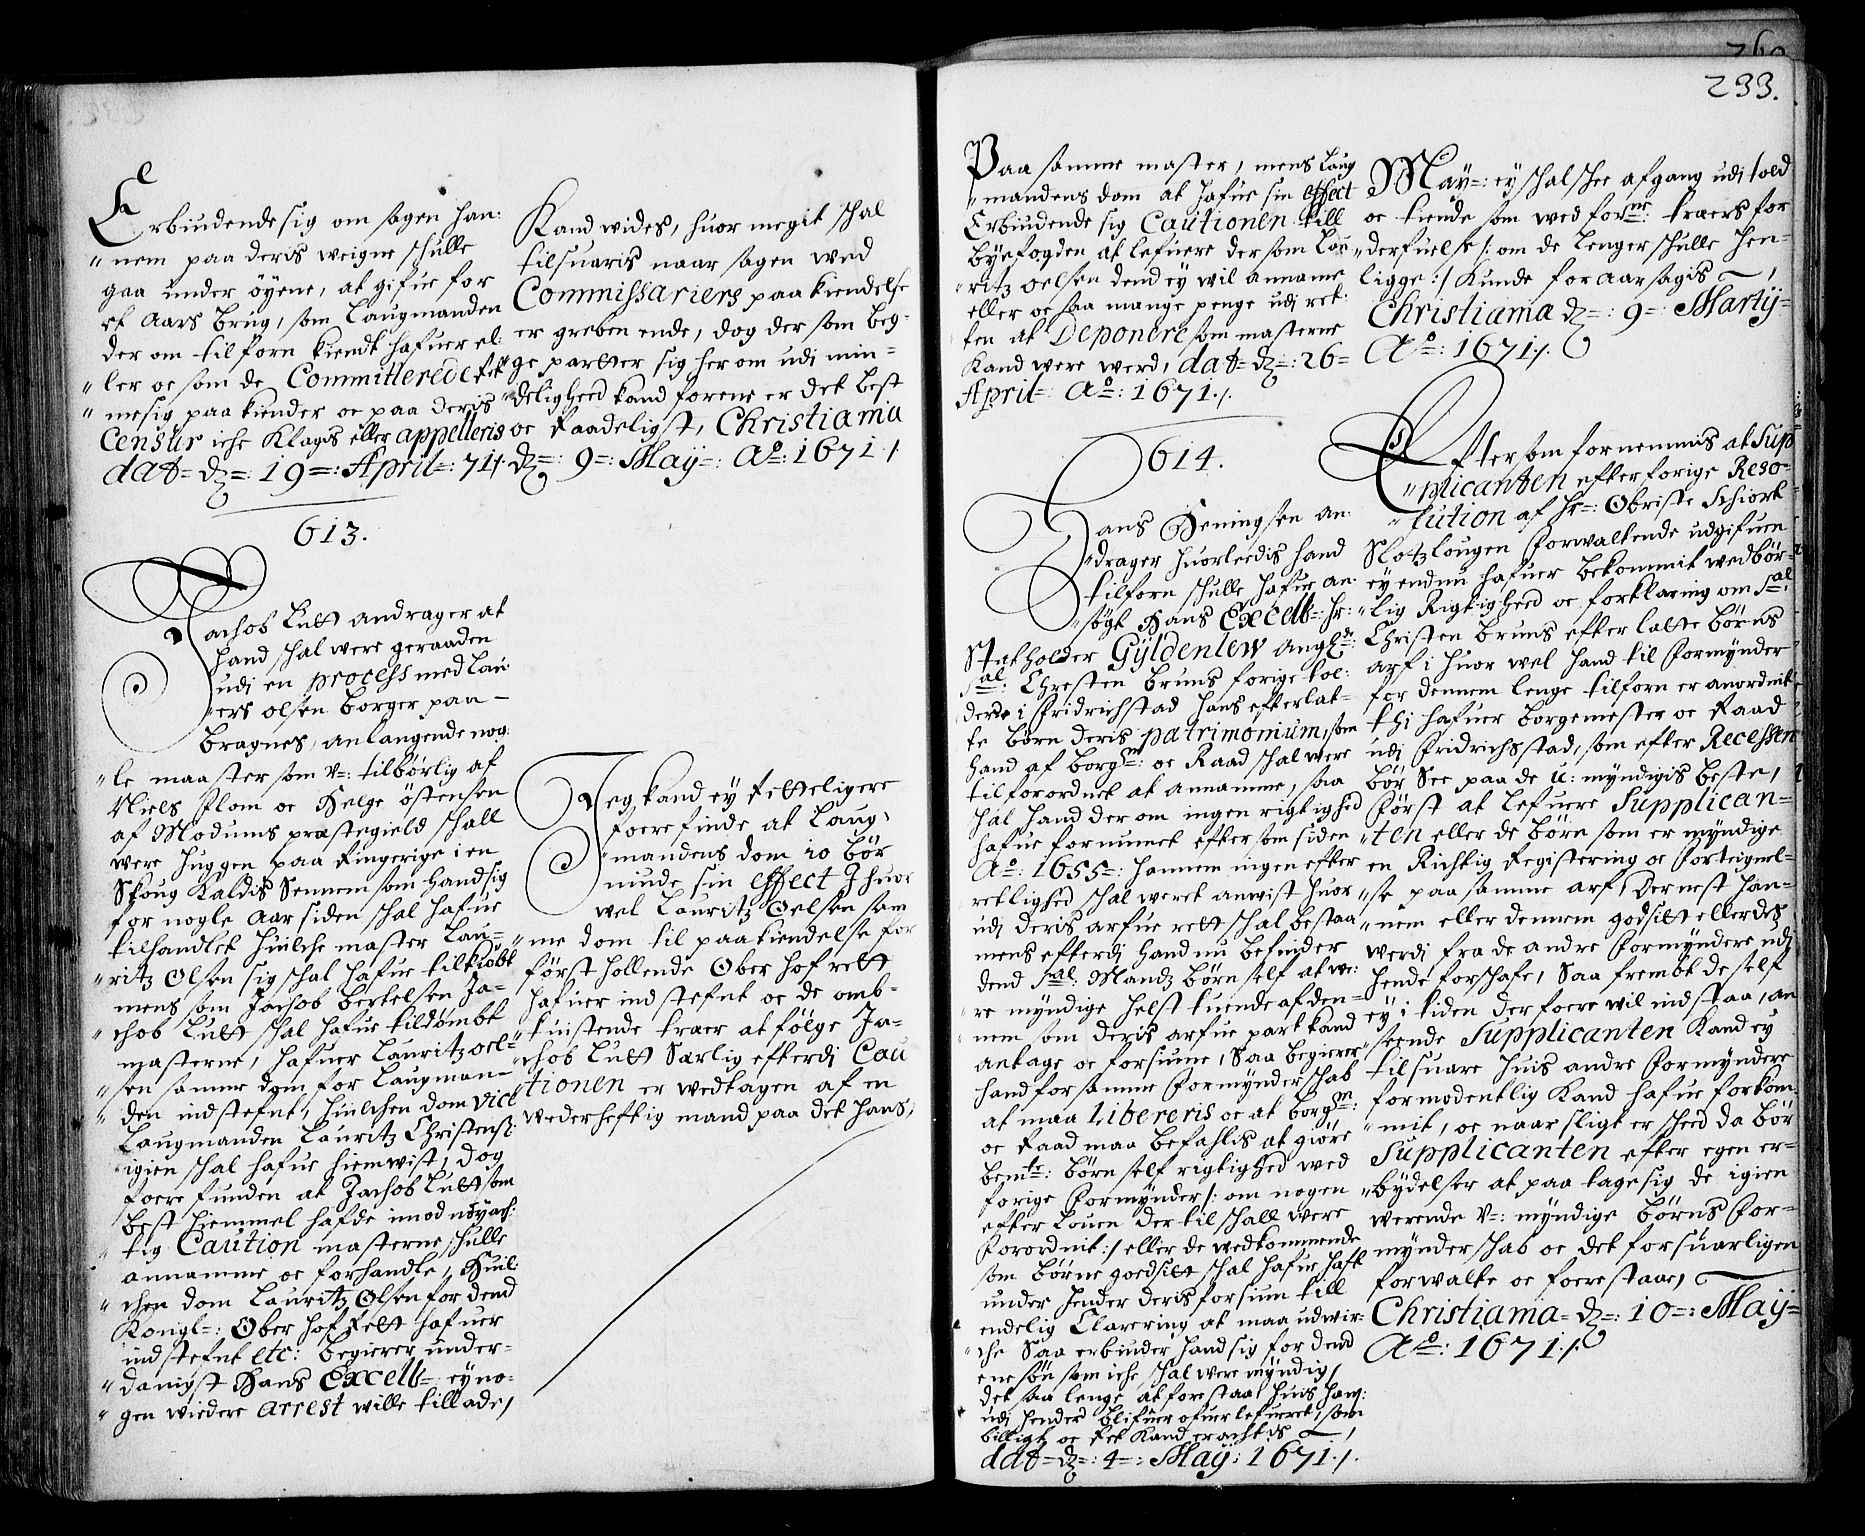 Erbiudende sig om sagen han:
nem paa deris weigne schulle
gaa under øyene, at gifue for
et Aars brug, som Laugmanden
der om tilforn kiendt hafuer el:
ler oc som de Committerede ret
mesig paakiender oc paa deris
Censúr iche Klagis eller appelleris
dat= dz=: 19=: April=: 71/.
Kand wides, huor megit schal
tilsuaris naar sagen wed
Commissariers paakiendelse
er greben ende, dog der som beg-
ge partter sig her om udi min-
delighed kand forene er det best
oc Raadeligst, Christiania
dz=: 9=: Maÿ=: Ao=: 1671 /.
613.
Jachob Lutt andrager at
hand schal were geraaden
udi en process med Lau
ers olsen borger paa
Bragnes, anlangende nog:
le maaster som V=: tilbørlig af
Niels Flom oc Helge Østensen
af Modums præstegield schall
were huggen paa Ringerige i en
Skoug Kaldis Sennem som hand sig
for nogle aar siden schal hafue
tilhandlet huilche master Lau=
ritz Olsen sig schal hafue tilkiøbt
mens som Jachob Bertelsen Ja-
chob Lutt schal hafue tildømbt
masterne, hafuer Lauritz oel=
sen samme dom for Laugman-
den indstefnt, huilchen dom vice
Laugmanden Lauritz Christens:
igien schal hafue hiemwist, dog
foere funden at Jachob Lutt som
best hiemmel hafde imod nøyach:
tig Caution masterne schulle
annamme oc forhandle, Huil:
chen dom Lauritz Olsen for dend
Kongl=: Ober hof Rett hafuer
indstefnt etc: begierer under-
danigst Hans Excell=: ey no-
gen widere arrest wille tillade,
Jeg kand ey retteligere
foere finde at Laug,
mandens dom io bør
niude sin effect Ihuor
wel Lauritz Oelsen sam
me dom til paakiendelse for
først hollende Ober hof rett
hafuer indstefnt oc de omb-
tuistende traer at følge Ja-
chob Lutt Særlig efterdi Cau
tionen er wedtagen af en
wederheftig mand paa det hans,
233.
Paa samme master, mens Laug
mandens dom at hafue sin effect
Erbiudende sig Cautionen till
byefogden at lefuere der som Lau
ritz oelsen dend ey wil anname
eller oc saa mange penge udi ret:
ten at Deponere som masterne
Kand were werd, dat= dz=: 26=
April=: Ao=: 1671./.
Maÿ=: ey schal schee afgang udi told
oc tiende som wed forne=: traers for
derfuelse /: om de lenger schulle hen-
ligge :/ Kunde foraarsagis
Christiania dz=: 9=: Martÿ=
Ao=: 1671/.
614.
Hans Heningsen an
drager huorledis hand
tilforn schulle hafue an
søgt Hans Excell=: Hr:
Statholder Gÿldenlew angde:
Sal: Chresten Bruns forige tol:
dere i Fridrichstad Hans efterlat-
te børn deris patrimonium, som
hand af borgm: oc Raad schal were
tilforordnet at annamme, saa
schal hand der om ingen rigtighed
hafue fornumet eftersom siden
Ao=: 1655=: hannem ingen efter
retlighed schal weret anwist huor
udi deris arfue rett schal bestaa
mens efterdi hand nu befinder
dend Sal: Mandz børn self at we:
re myndige helst tuende af den=
nem som deris arfue part kand
antage oc forsiune, Saa begierer
hand for samme Formynderschab
at maa Libereris oc at borgm:
oc Raad maa befahlis at giøre
bemte: børn self rigtighed wed
forige Formynder /: om nogen
efter Louen der til schall were
Forordnit :/ eller de wedkommende
som børne goedsitt schal hafue haft
under hender deris forsiun till
endelig Clarering at maa udwir:
che Saa erbinder hand sig for dend
ene søn som iche schal were myndig,
det saa lenge at forestaa huis ham:
udi hender blifuer ofuerlefueret, som
billigt oc ret Kand erachtis
dat= dz=: 4=: Maÿ: 1671./.
Efter som fornemmis at Sup
plicanten efter forige Reso-
lution af Hr=: Obriste
Slotz lougen Forwaltende udgifuen
ey endnu hafuer bekommit wedbør-
lig Rigtighed oc forklaring om Sal:
Christen Bruns efterlatte børns
arf i huor wel hand til Formynder
for dennem lenge tilforn er anordnit
thi hafuer borgemester oc Raad
udi Fridrichsstad, som efter Recessen
bør See paa de U: myndigis beste,
Først at lefuere Supplican=
ten eller de børn som er myndige
en Richtig Registering oc Forteignel=
se paa samme arf, Dernest han-
nem eller dennem godsitt eller des
werdi fra de andre Formyndere udi
hende forschafe, Saa frembt de self
ey i tiden der foere wil indstaa, an
seende Supplicanten Kand ey
tilsuare huis andre Formyndere
formodentlig Kand hafue forkom:
mit, oc naar sligt er scheed da bør
Supplicanten efter egen er=
bydelser at paa tage sig de igien
werende V=: myndige børns For-
mynderschab oc det forsuarligen
forwalte oc foerestaae,
Christiania= dz=: 10=: Maÿ=
Ao=: 1671./.